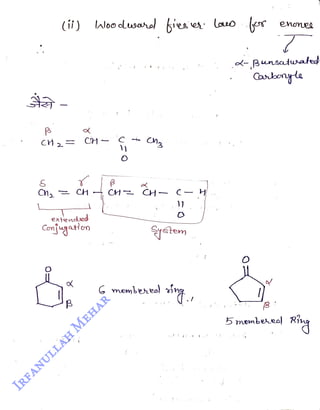 (ii) Woodward fieser laws for enones
α-βunsaturated
Carbonyls
जैसे -
β α
CH2 = CH - C - CH3
||
O
δ γ β α
CH2 = CH - CH = CH - C - H
||
O
extended
Conjugation
System
O
α
β
6 membered ring.
O
α
β
5 membered Ring
IRFANULLAH MEHAR